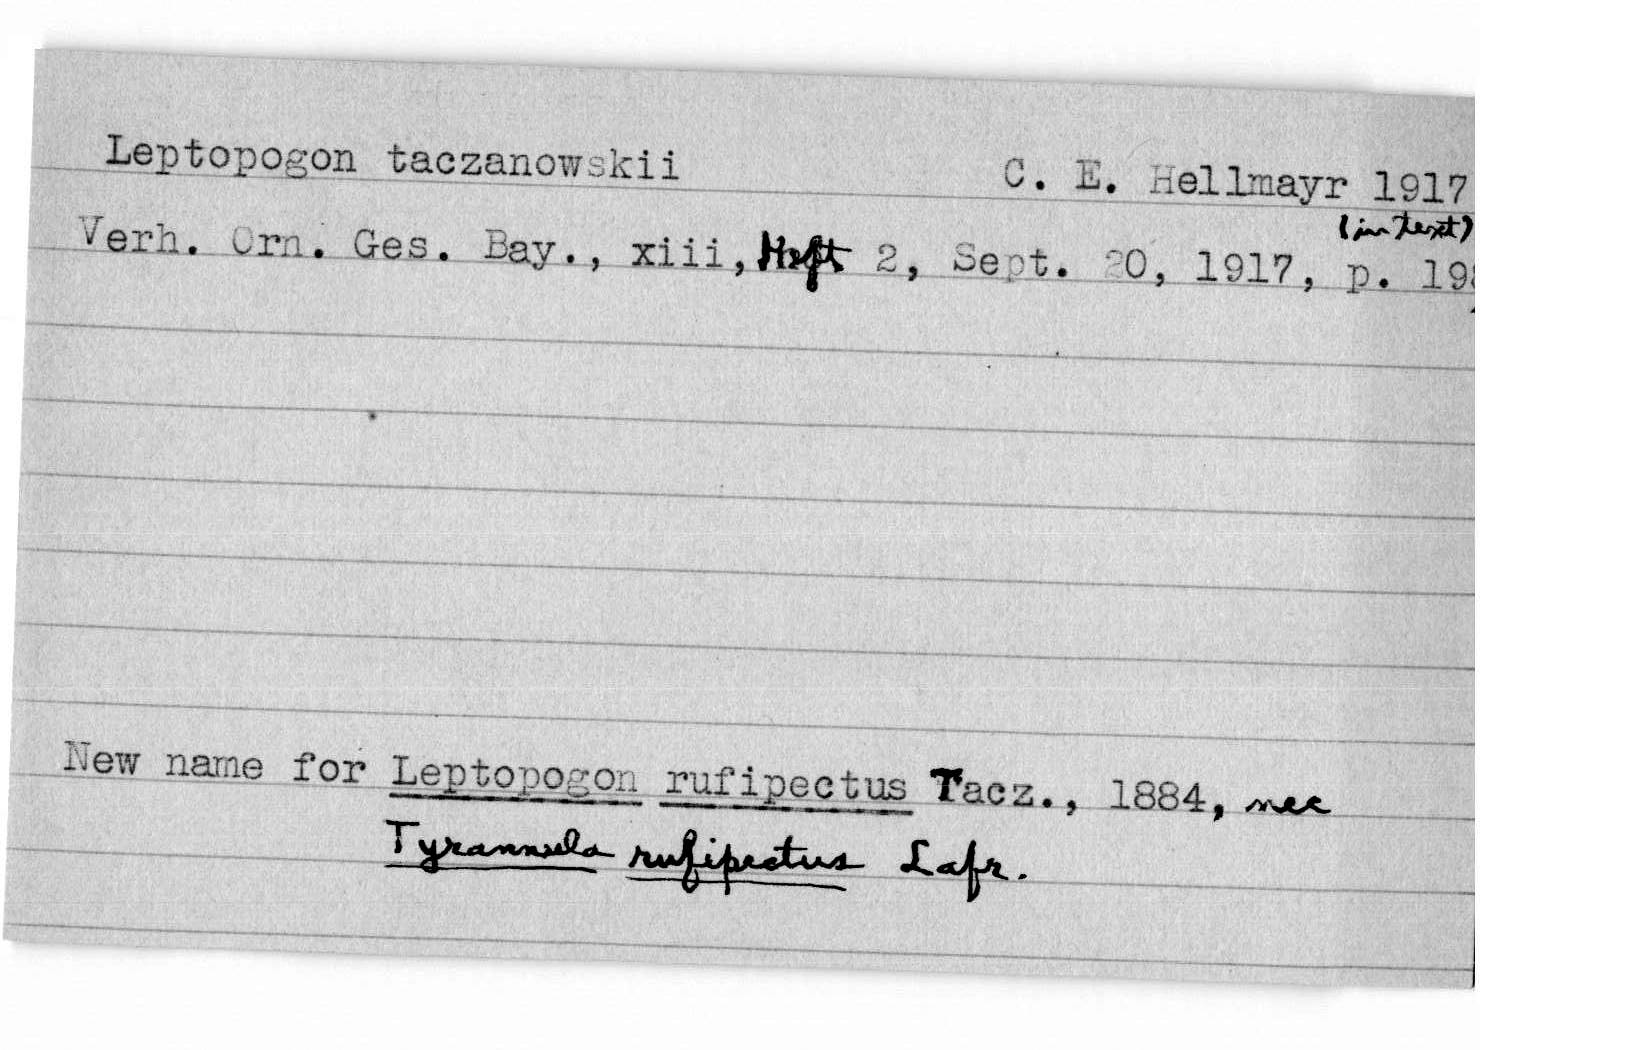 Leptopogon taczanowskii C. E. Hellmayr 1917
(in text)
Verh. Orn. Ges. Bay., xiii, Heft 2, Sept. 20, 1917, p.
New name for Leptopogon rufipectus Tacz., 1884, nec
Tyrannula rufipectus Lafr.